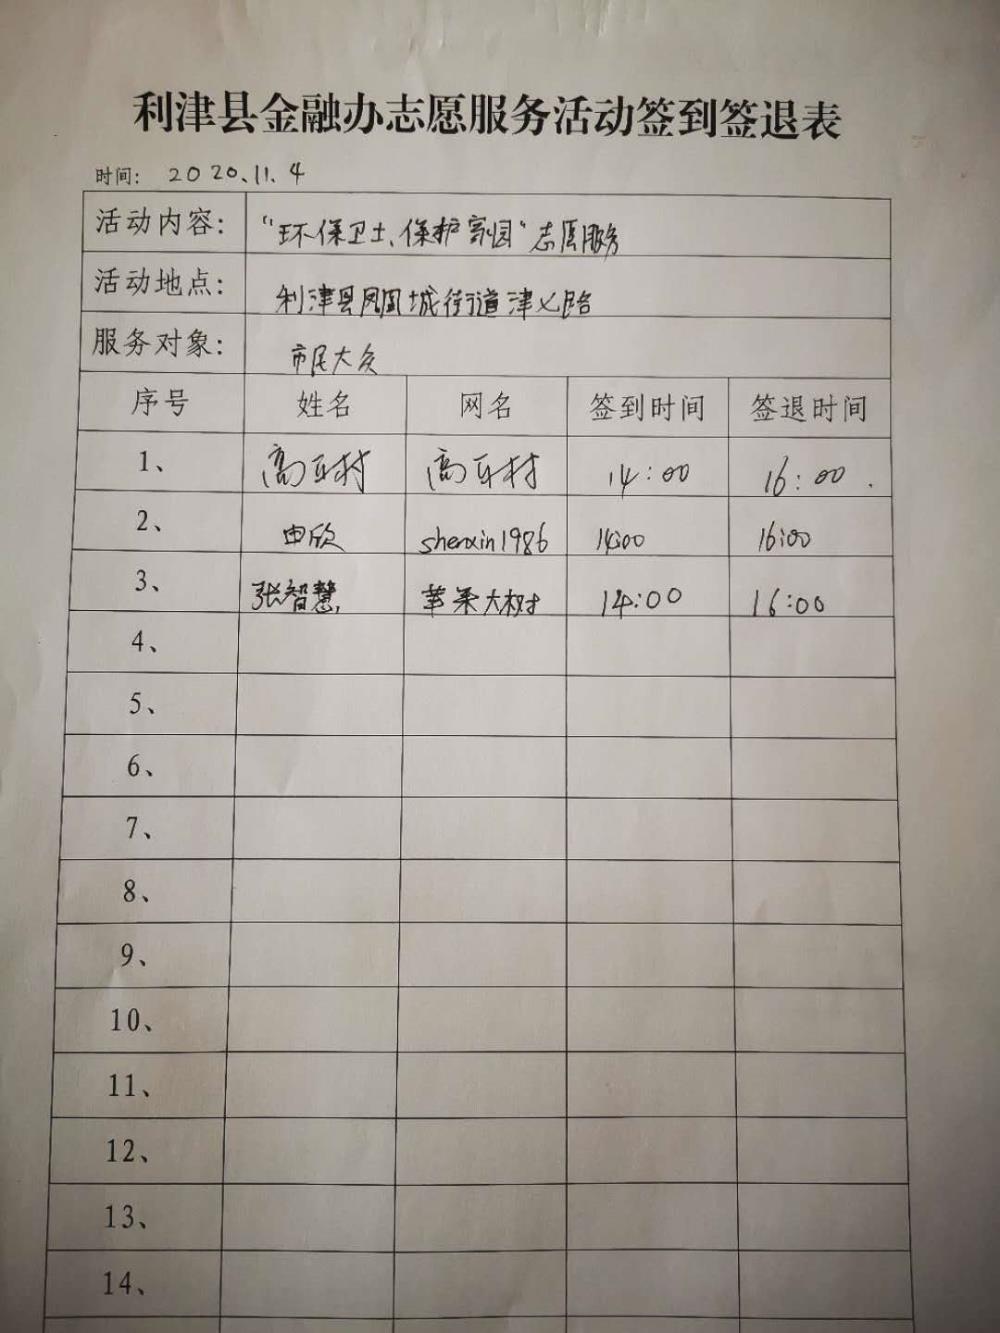 利津县金融办志愿服务活动签到签退表
时间: 2020.11.4
活动内容: "环保卫士、保护家园"志愿服务
活动地点: 利津县凤凰城街道津乂路
服务对象: 市民大众
序号 姓名 网名 签到时间 签退时间
1、 高 村 高 村 14:00 16:00.
2、 申欣 shenxin1986 14:00 16:00
3、 张智慧 苹果大树 14:00 16:00
4、
5、
6、
7、
8、
9、
10、
11、
12、
13、
14、